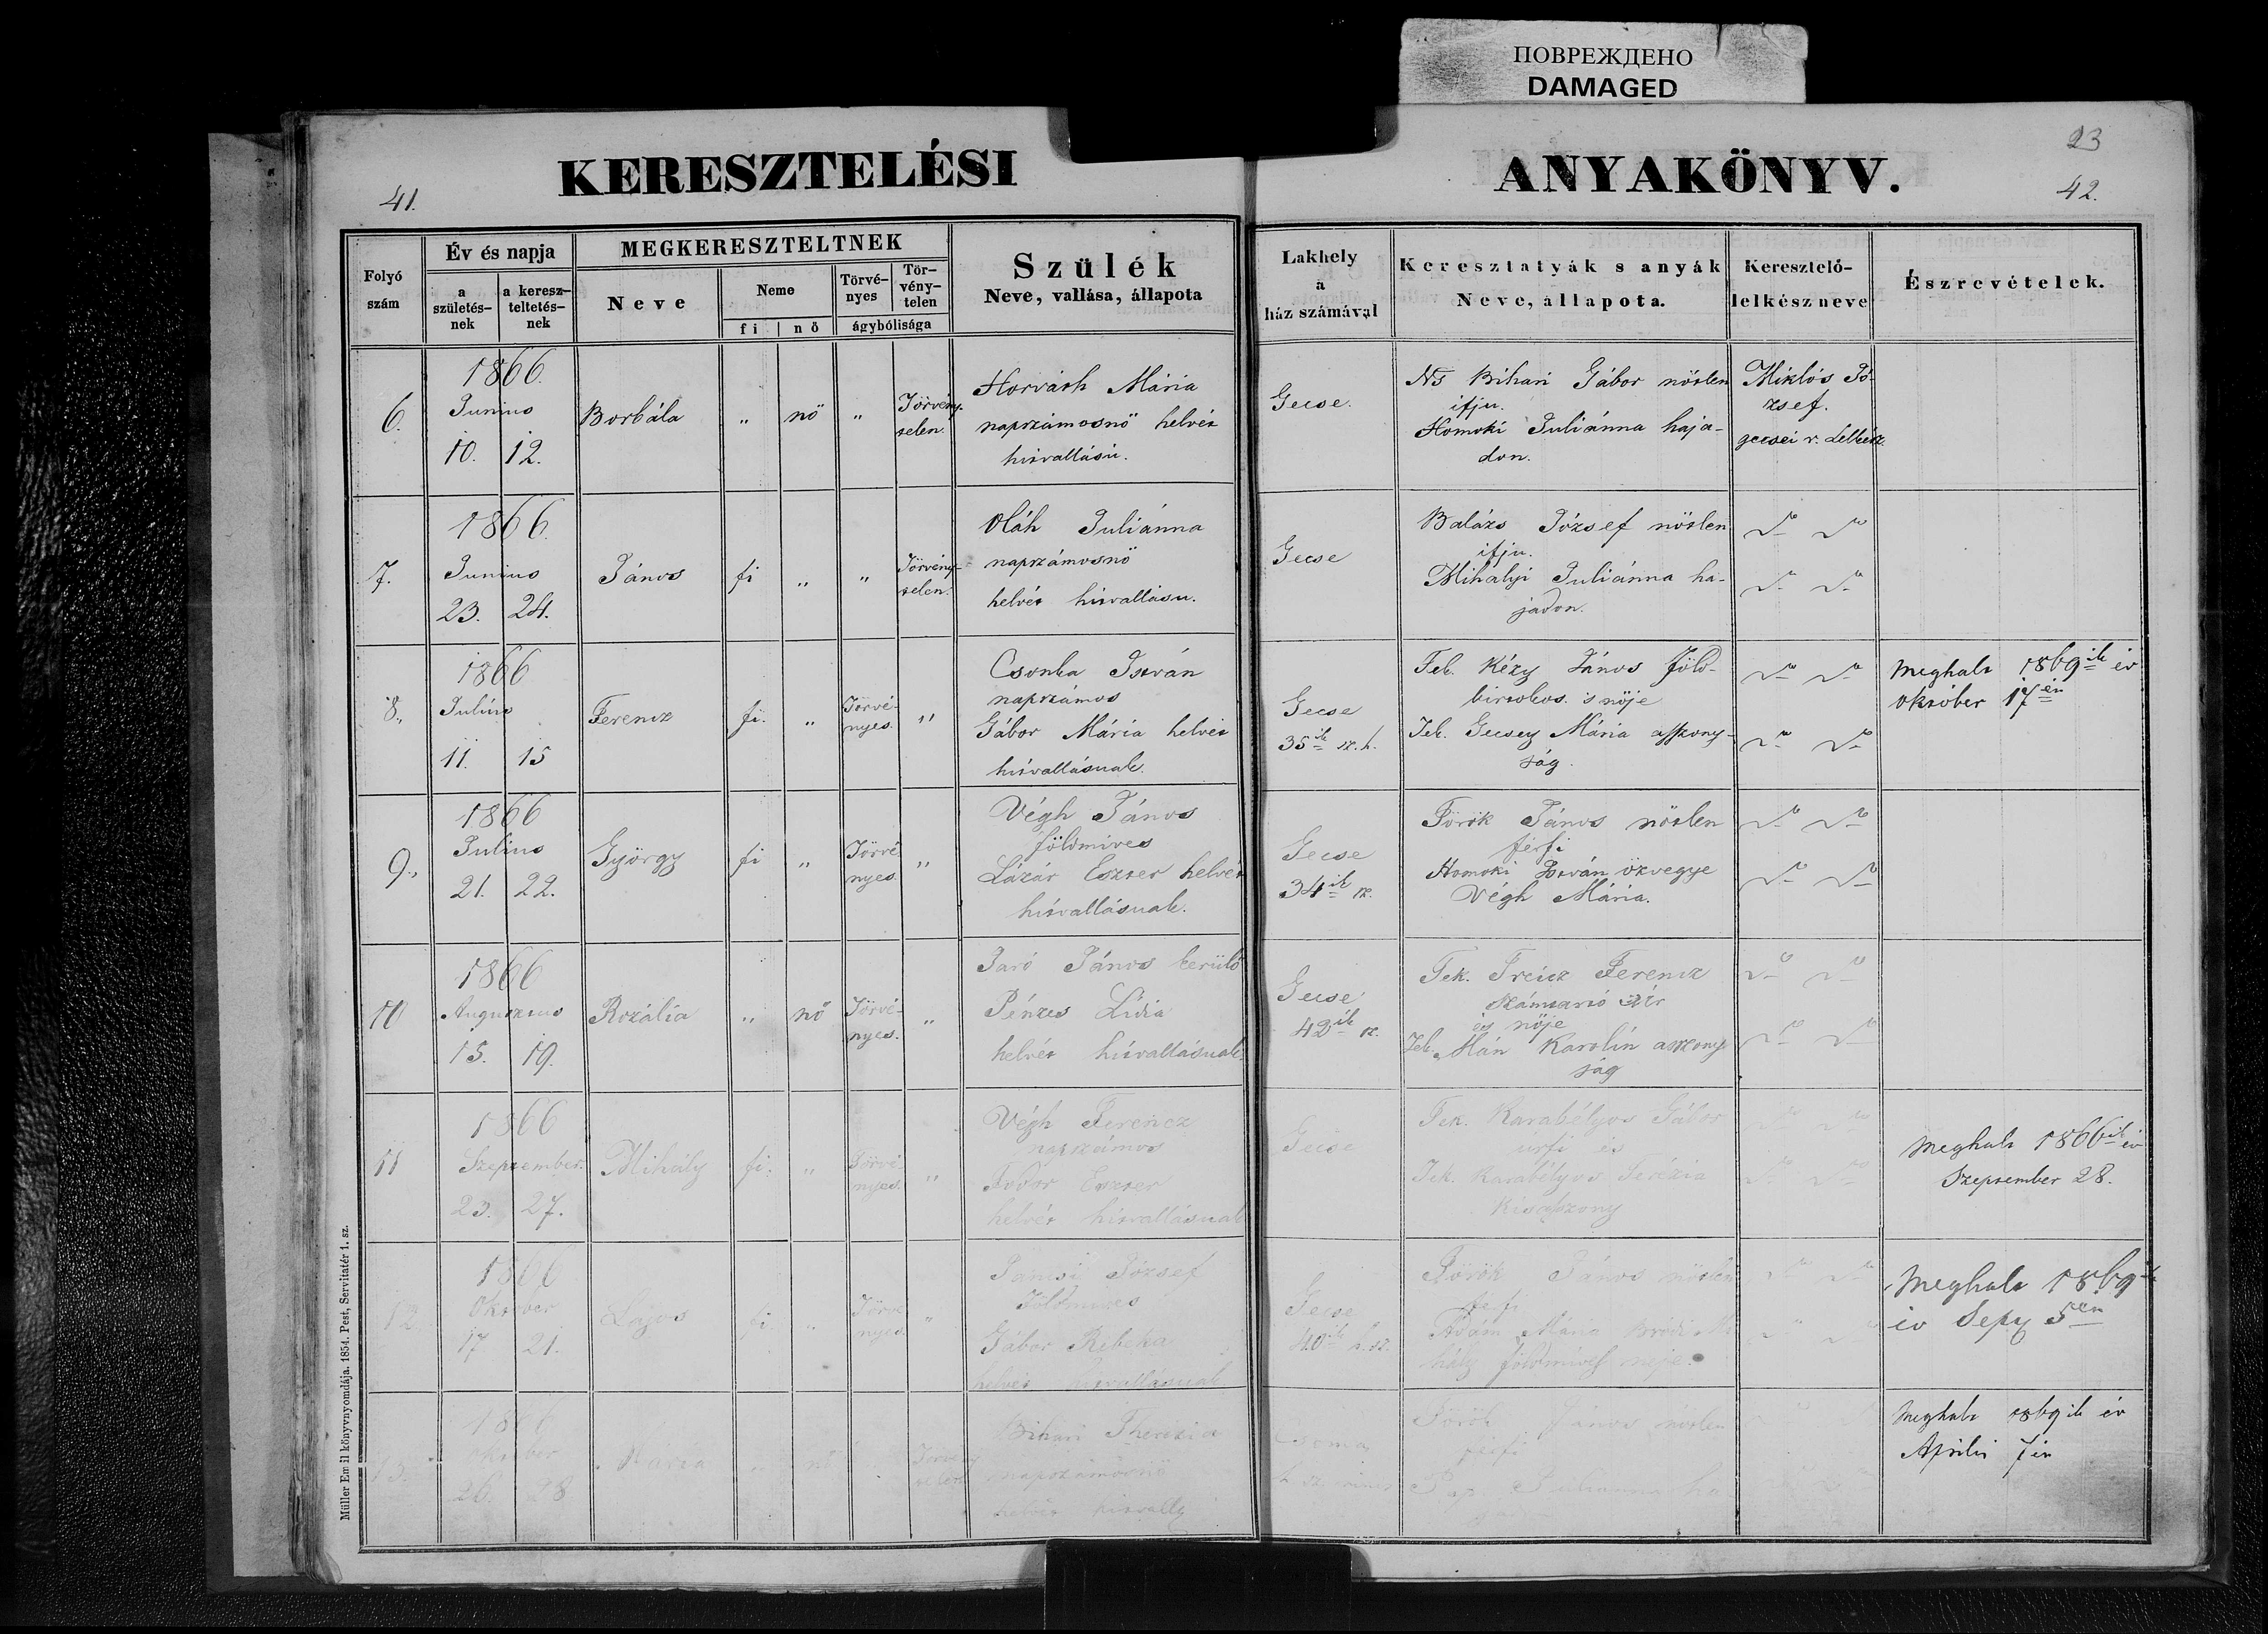 ПОВРЕЖДЕНО
DAMAGED
23
41.
KERESZTELÉSI
ANYAKÖNYV.
42.
Folyó
szám
Év és napja
a
születés-
nek
a keresz-
teltetés-
nek
MEGKERESZTELTNEK
Neve
Neme
fi
nö
Törvé-
nyes
Tör-
vény-
telen
ágybólisága
Szülék
Neve, vallása, állapota
Lakhely
a
ház számával
Keresztatyák s anyák
Neve, állapota.
Keresztelő-
lelkész neve
Észrevételek.
6.
1866.
Junius
10. 12.
Borbála
" nő "
Törvény-
telen.
Horváth Mária
napszámosnő helvét
hitvallásu.
Gecse.
Ns Bihari Gábor nőtlen
ifju.
Homoki Juliánna haja-
don.
Miklós Jó-
zsef.
gecsei r. Lelkész
7.
1866.
Junius
23. 24.
János
fi " "
Törvény-
telen.
Oláh Juliánna
napszámosnő
helvét hitvallásu.
Gecse
Balázs József nőtlen
ifju.
Mihályi Juliánna ha-
jadon.
8.,
1866
Julius
11. 15
Ferencz
fi. "
Törvé-
nyes. "
Csonka István
napszámos
Gábor Mária helvét
hitvallásuak.
Gecse
35ik sz. h.
Tek. Kézy János föld-
birtokos s nője
Tek. Gecsey Mária asszony-
ság.
Meghalt 1869ik év
október 17én
9.,
1866
Julius
21. 22.
György
fi "
Törvé-
nyes "
Végh János
földmives
Lázár Eszter helvét
hitvallásuak.
Gecse
34ik sz.
Török János nőtlen
férfi
Homoki István özvegye
Végh Mária.
10
1866
Augusztus
15. 19.
Rozália
" nő
Törvé-
nyes. "
János kerülő
Pénzes Lídia
helvét hitvallásuak.
Gecse
42ik sz.
Tek. Ferencz
számtartó
és nője
Tek. Mán Karolin asszony-
ság
11
1866
Szeptember.
23. 27.
Mihály
fi. "
Törvé-
nyes. "
Végh Ferencz
napszámos
Fodor Eszter
helvét hitvallásuak
Gecse
Tek. Karabélyos Gábor
úrfi és
Tek. Karabélyos Terézia
Kisasszony
Meghalt 1866ik év
Szeptember 28.
12.
1866
Oktober
17 21.
Lajos
fi "
Törvé-
nyes "
József
Földmives
Gábor Rebeka
helvét hitvallásuak
Gecse
40ik h. sz.
Török János nőtlen
férfi
Ádám Mária
földmives neje.
Meghalt 1869ik
év Sept 5én
13.
1866
oktober
26. 28
Mária
" nő
Törvény-
telen
Bihari Therézia
napszámosnő
helvét hitvallás
Török János nőtlen
férfi
Juliánna
Meghalt 1869ik év
Aprilis 7én
Müller Emil könyvnyomdája. 1854. Pest, Servitatér 1. sz.